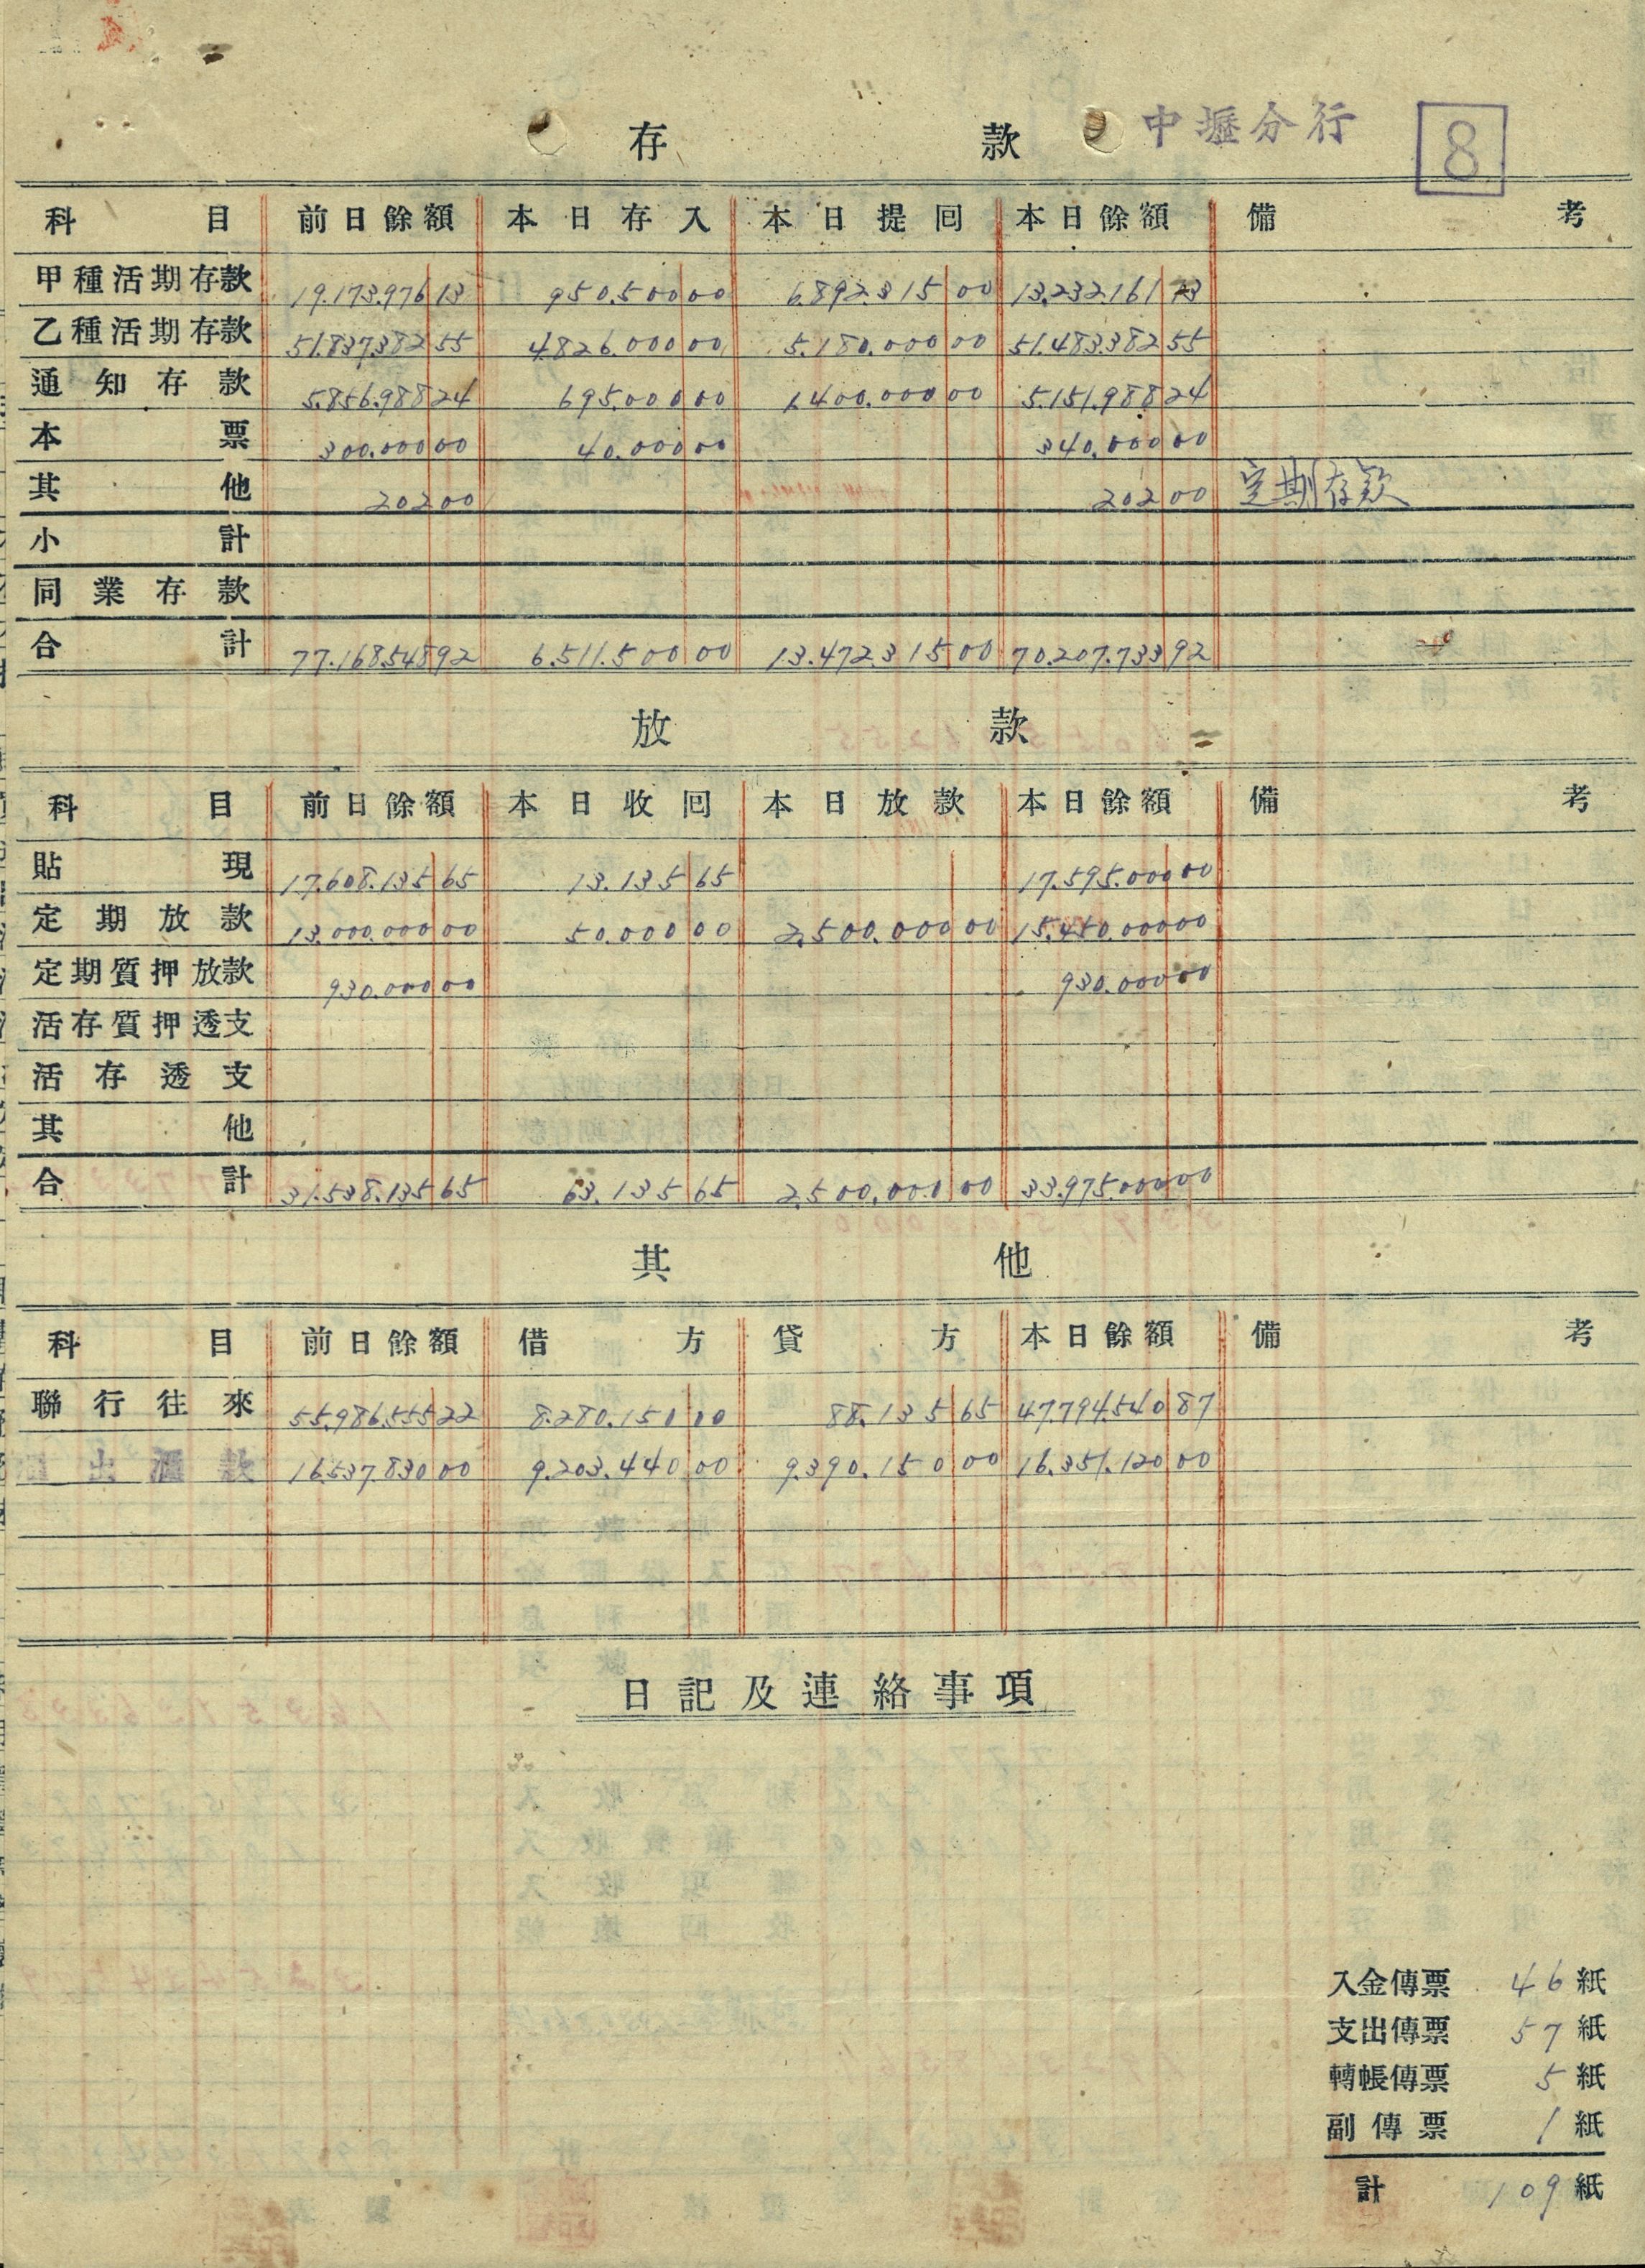 中壢分行 8
存 款
科 目 前日餘額 本日存入 本日提囘 本日餘額 備 考
甲種活期存款 19.173.976 13 950.500 00 6.892.315 00 13.232.161 13
乙種活期存款 51.837.382 55 4.826.000 00 5.180.000 00 51.483.382 55
通知存款 5.856.988 24 695.000 00 1.400.000 00 5.151.988 24
本票 300.000 00 40.000 00 340.000 00
其他 202 00 202 00 定期存款
小計
同業存款
合計 77.168.548 92 6.511.500 00 13.472.315 00 70.207.733 92
放 款
科 目 前日餘額 本日收囘 本日放款 本日餘額 備 考
貼現 17.608.135 65 13.135 65 17.595.000 00
定期放款 13.000.000 00 50.000 00 2.500.000 00 15.450.000 00
定期質押放款 930.000 00 930.000 00
活存質押透支
活存透支
其他
合計 31.538.135 65 63.135 65 2.500.000 00 33.975.000 00
其 他
科 目 前日餘額 借方 貸方 本日餘額 備 考
聯行往來 55.986.555 22 8.280.150 00 88.135 65 47.794.540 87
匯出匯款 16.537.830 00 9.203.440 00 9.390.150 00 16.351.120 00
日記及連絡事項
入金傳票 46 紙
支出傳票 57 紙
轉帳傳票 5 紙
副傳票 1 紙
計 109 紙